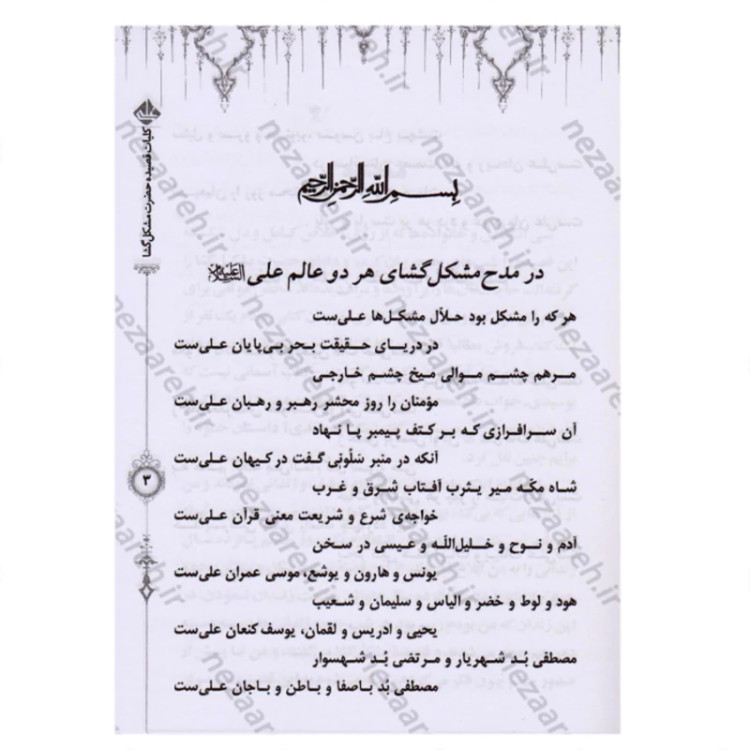 بسم الله الرحمن الرحیم
در مدح مشکل‌گشای هر دو عالم علی علیه‌السلام
هر که را مشکل بود حلاّل مشکل‌ها علی‌ست
در دریای حقیقت بحر بی‌پایان علی‌ست
مرهم چشم موالی میخ چشم خارجی
مؤمنان را روز محشر رهبر و رهبان علی‌ست
آن سرافرازی که بر کتف پیمبر پا نهاد
آنکه در منبر سَلُونِی گفت در کیهان علی‌ست
شاه مکّه میر یثرب آفتاب شرق و غرب
خواجه‌ی شرع و شریعت معنی قرآن علی‌ست
آدم و نوح و خلیل‌اللّه و عیسی در سخن
یونس و هارون و یوشع، موسی عمران علی‌ست
هود و لوط و خضر و الیاس و سلیمان و شعیب
یحیی و ادریس و لقمان، یوسف کنعان علی‌ست
مصطفی بُد شهریار و مرتضی بُد شهسوار
مصطفی بُد باصفا و باطن و باجان علی‌ست
کلیات قصیده حضرت مشکل گشا
۳
nezaareh.ir